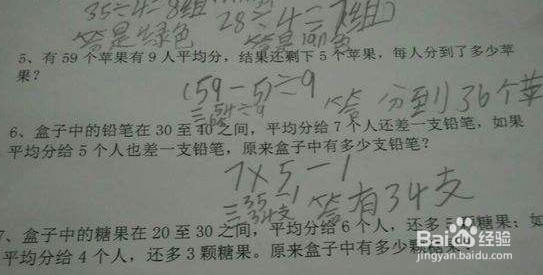 35÷4=8组
28÷4=7(组)
答是绿色
答是
5、有 59 个苹果有 9 人平均分，结果还剩下 5 个苹果，每人分到了多少苹
果？
(59-5)÷9
=54÷9
答 分到了36个苹
6、盒子中的铅笔在 30 至 40 之间，平均分给 7 个人还差一支铅笔，如果
平均分给 5 个人也差一支铅笔，原来盒子中有多少支铅笔？
7×5-1
=35-1
=34支
答有34支
7、盒子中的糖果在 20 至 30 之间，平均分给 6 个人，还多 5 颗糖果；如
平均分给 4 个人，还多 3 颗糖果。原来盒子中有多少颗糖果
Baidu 经验
jingyan.baidu.com